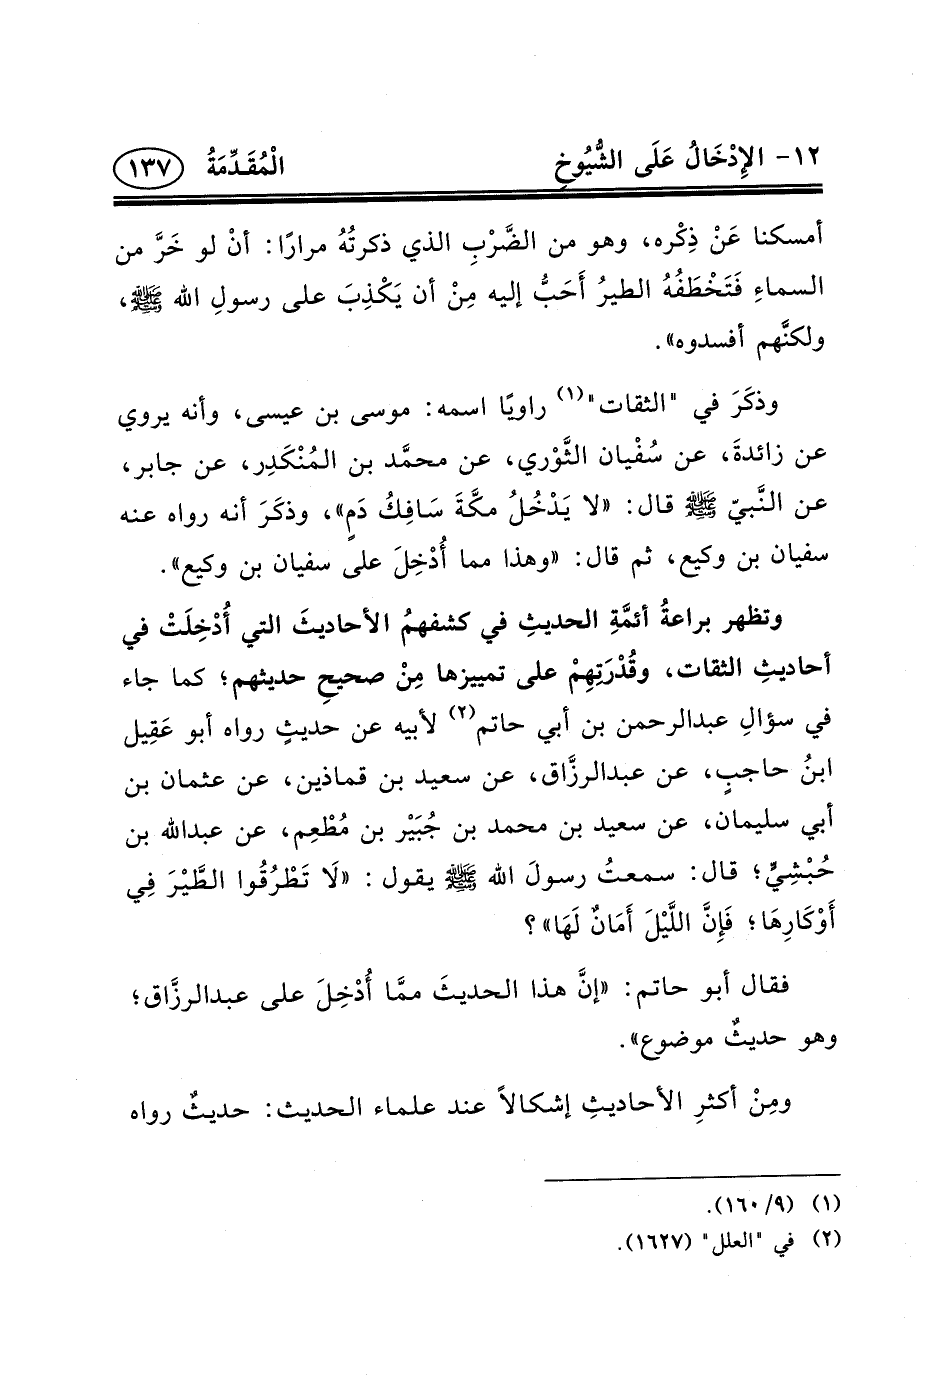 ١٢- الإِدْخَالُ عَلَى الشُّيُوخِ الْمُقَدِّمَةُ ١٣٧
أمسكنا عَنْ ذِكْره، وهو من الضَّرْبِ الذي ذكرتُهُ مرارًا: أنْ لو خَرَّ من
السماءِ فَتَخْطَفُهُ الطيرُ أَحَبُّ إليه مِنْ أن يَكْذِبَ على رسولِ الله ﷺ،
ولكنَّهم أفسدوه».
وذكَرَ في "الثقات"(١) راويًا اسمه: موسى بن عيسى، وأنه يروي
عن زائدةَ، عن سُفْيان الثَّوْري، عن محمَّد بن المُنْكَدِر، عن جابر،
عن النَّبيِّ ﷺ قال: «لا يَدْخُلُ مكَّةَ سَافِكُ دَمٍ»، وذكَرَ أنه رواه عنه
سفيان بن وكيع، ثم قال: «وهذا مما أُدْخِلَ على سفيان بن وكيع».
وتظهر براعةُ أئمَّةِ الحديثِ في كشفهمُ الأحاديثَ التي أُدْخِلَتْ في
أحاديثِ الثقات، وقُدْرَتِهِمْ على تمييزها مِنْ صحيحِ حديثهم؛ كما جاء
في سؤالِ عبدالرحمن بن أبي حاتم(٢) لأبيه عن حديثٍ رواه أبو عَقِيل
ابنُ حاجبٍ، عن عبدالرزَّاق، عن سعيد بن قماذين، عن عثمان بن
أبي سليمان، عن سعيد بن محمد بن جُبَيْر بن مُطْعِم، عن عبدالله بن
حُبْشِيٍّ؛ قال: سمعتُ رسولَ الله ﷺ يقول: «لَا تَطْرُقُوا الطَّيْرَ فِي
أَوْكَارِهَا؛ فَإِنَّ اللَّيْلَ أَمَانٌ لَهَا»؟
فقال أبو حاتم: «إنَّ هذا الحديثَ ممَّا أُدْخِلَ على عبدالرزَّاق؛
وهو حديثٌ موضوع».
ومِنْ أكثرِ الأحاديثِ إشكالاً عند علماء الحديث: حديثٌ رواه
(١) (٩/ ١٦٠).
(٢) في "العلل" (١٦٢٧).